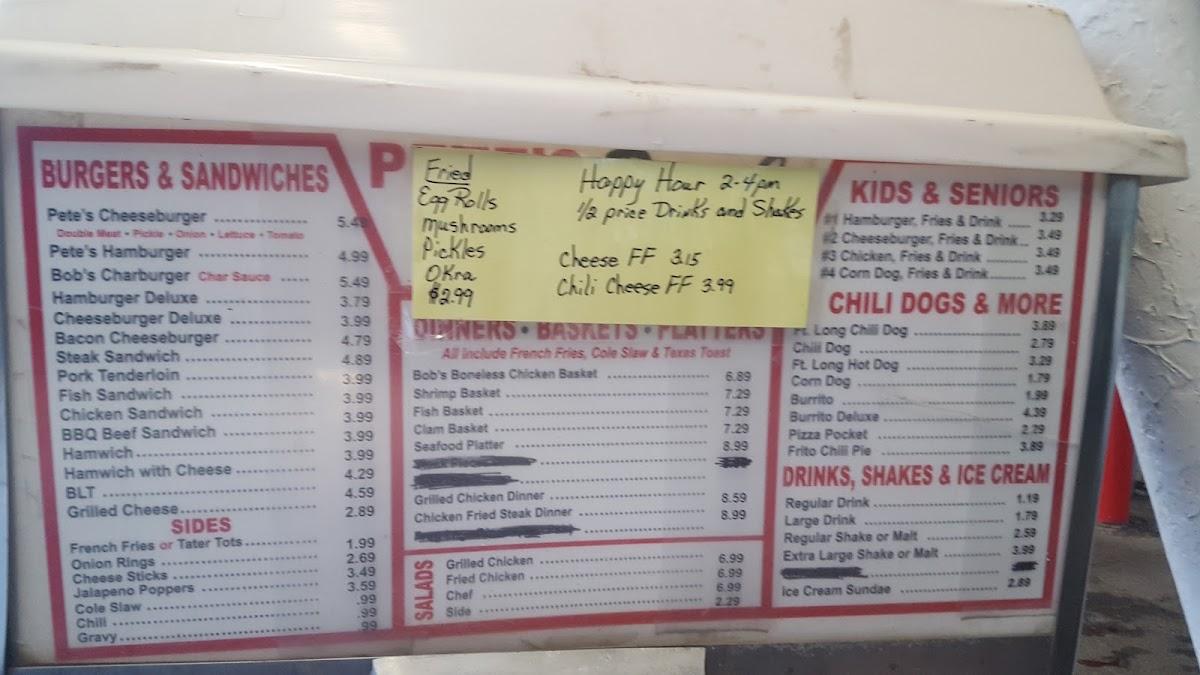 BURGERS & SANDWICHES
Pete's Cheeseburger 5.49
Double Meat • Pickle • Onion • Lettuce • Tomato
Pete's Hamburger 4.99
Bob's Charburger Char Sauce 5.49
Hamburger Deluxe 3.79
Cheeseburger Deluxe 3.99
Bacon Cheeseburger 4.79
Steak Sandwich 4.89
Pork Tenderloin 3.99
Fish Sandwich 3.99
Chicken Sandwich 3.99
BBQ Beef Sandwich 3.99
Hamwich 3.99
Hamwich with Cheese 4.29
BLT 4.59
Grilled Cheese 2.89
SIDES
French Fries or Tater Tots 1.99
Onion Rings 2.69
Cheese Sticks 3.49
Jalapeno Poppers 3.59
Cole Slaw .99
Chili .99
Gravy .99
Fried
Egg Rolls
Mushrooms
Pickles
OKra
$2.99
Happy Hour 2-4pm
1/2 price Drinks and Shakes
Cheese FF 3.15
Chili Cheese FF 3.99
DINNERS • BASKETS • PLATTERS
All Include French Fries, Cole Slaw & Texas Toast
Bob's Boneless Chicken Basket 6.89
Shrimp Basket 7.29
Fish Basket 7.29
Clam Basket 7.29
Seafood Platter 8.99
Grilled Chicken Dinner 8.59
Chicken Fried Steak Dinner 8.99
SALADS
Grilled Chicken 6.99
Fried Chicken 6.99
Chef 6.99
Side 2.29
KIDS & SENIORS
#1 Hamburger, Fries & Drink 3.29
#2 Cheeseburger, Fries & Drink 3.49
#3 Chicken, Fries & Drink 3.49
#4 Corn Dog, Fries & Drink 3.49
CHILI DOGS & MORE
Ft. Long Chili Dog 3.89
Chili Dog 2.79
Ft. Long Hot Dog 3.29
Corn Dog 1.79
Burrito 1.99
Burrito Deluxe 4.39
Pizza Pocket 2.29
Frito Chili Pie 3.89
DRINKS, SHAKES & ICE CREAM
Regular Drink 1.19
Large Drink 1.79
Regular Shake or Malt 2.59
Extra Large Shake or Malt 3.99
Ice Cream Sundae 2.89